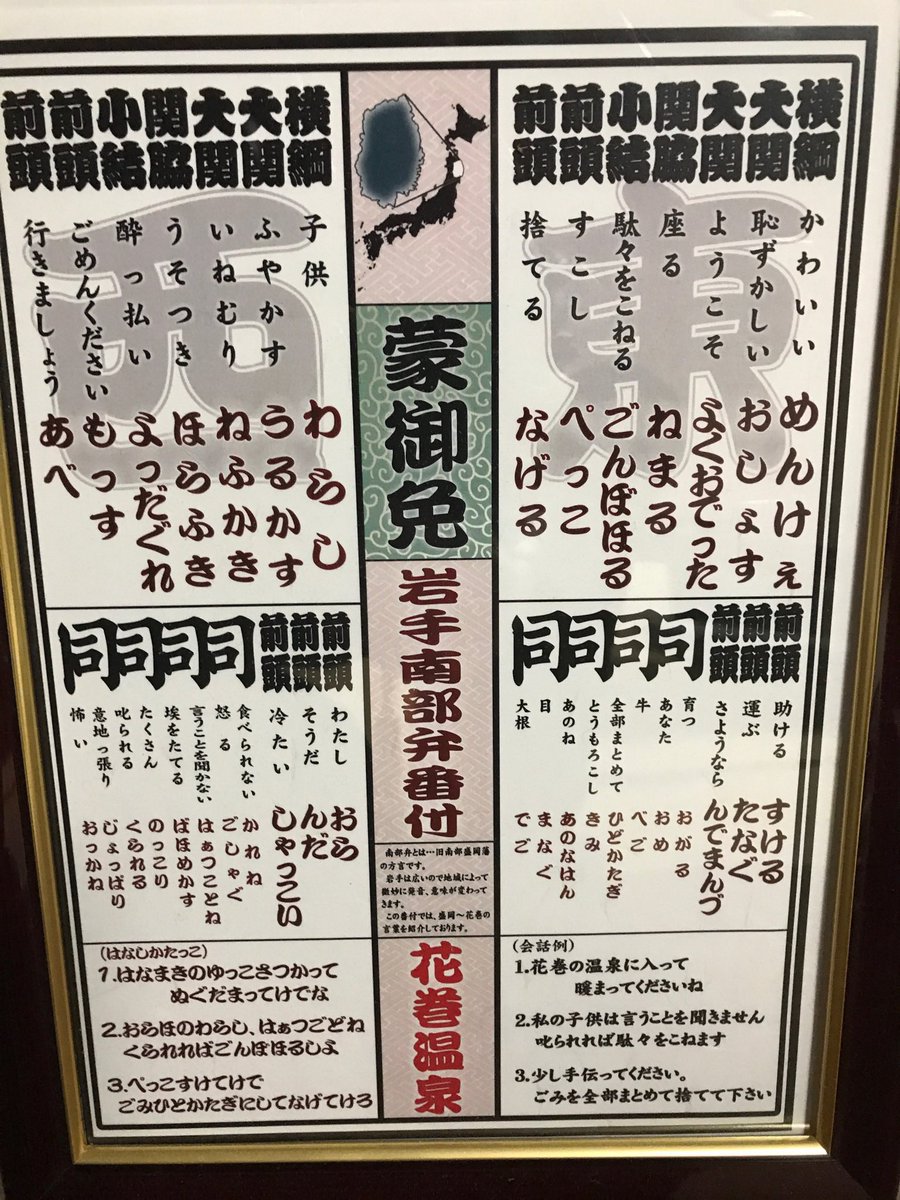 東
横綱 かわいい めんけぇ
大関 恥ずかしい おしょす
大関 ようこそ よくおでった
関脇 座る ねまる
小結 駄々をこねる ごんぼほる
前頭 すこし ぺっこ
前頭 捨てる なげる
前頭 助ける すける
前頭 運ぶ たなぐ
前頭 さようなら んでまんづ
同 同 同 同
育つ おがる
あなた おめ
牛 べご
全部まとめて ひどかたぎ
とうもろこし きみ
あのね あのなはん
目 まなぐ
大根 でご
(会話例)
1.花巻の温泉に入って
暖まってくださいね
2.私の子供は言うことを聞きません
叱られれば駄々をこねます
3.少し手伝ってください。
ごみを全部まとめて捨てて下さい
蒙御免
岩手南部弁番付
南部弁とは…旧南部盛岡藩
の方言です。
岩手は広いので地域によって
微妙に発音、意味が変わって
きます。
この番付では、盛岡〜花巻の
言葉を紹介しております。
花巻温泉
西
横綱 子供 わらし
大関 ふやかす うるかす
大関 いねむり ねふかき
関脇 うそつき ほらふき
小結 酔っ払い よっだぐれ
前頭 ごめんください もっす
前頭 行きましょう あべ
前頭 わたし おら
前頭 そうだ んだ
前頭 冷たい しゃっこい
同 同 同 同
食べられない かれね
怒る ごしゃぐ
言うことを聞かない はぁつことね
埃をたてる ばほめかす
たくさん のっこり
叱られる くられる
意地っ張り じょっぱり
怖い おっかね
(はなしかたっこ)
1.はなまきのゆっこさつかって
ぬぐだまってけでな
2.おらほのわらし、はぁつごどね
くられればごんぼほるしよ
3.ぺっこすけてけで
ごみひとかたぎにしてなげてけろ